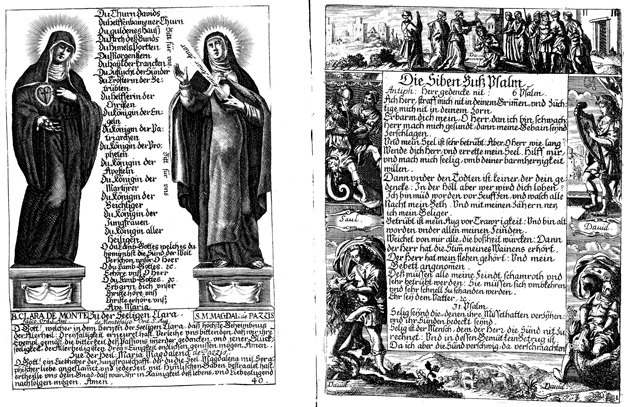 Du Thurn Davids
Du helffenbainner Thurn
Du guldenes hauß
Du Arch deß Bunds
Du himels Portten
Du Morgenstern
Du hayl der Krancken
Du Zuflucht der Sünder
Du Trösterin der Be-
trübten
Du helfferin der
Christen
Du Königin der En-
geln
Du Königin der Pa-
triarchen
Du Königin der Pro-
pheten
Du Königin der
Aposteln
Du Königin der
Martyrer
Du Königin der
Beichtiger
Du Königin der
Jungfrauen
Du Königin aller
Heiligen.
O du Lamb Gottes welches du
hinnimbst die Sünd der Welt
Verschon unser O Herr
O du Lamb Gottes. ec.
Erhöre unß O Herr.
O du Lamb Gottes. ec.
Erbarm dich unser
Christe höre unß
Christe erhöre unß
Ave Maria
Bitt für uns
Bitt für uns
B. CLARA DE MONTE
S. M. MAGDAL. de PAZZIS
Zu der Seligen Clara
O Gott! welicher in dem Hertzen der Seligen Clara, daß höchste Geheimbnus
Sue der Heil. Maria Magdalena de Pazzis.
O Gott! ein Liebhaber der Jungfrauschafft, der du die Heil. Magdalena mit Sera-
phischer liebe angeflamet, und
nachfolgen mögen. Amen.
40.
Die Siben Buß Psalm.
Antiph: Herr gedencke nit: 6 Psalm
Ach Herr, straff mich nit in deinem Grimen, und Züch-
tige mich nit in deinem Zorn.
Erbarm dich mein O Herr, dan ich bin schwach,
Herr mach mich gesundt, dann meine Gebain seynd
zerschlagen.
Und mein Seel ist sehr betrübt: Aber O Herr wie lang?
Wende dich Herr, und errette mein Seel. Hilff mir,
und mach mich seelig, umb deiner barmhertzigkeit
willen.
Dann under den Todten ist keiner der dein ge-
dencke: In der Höll aber wer wird dich loben?
Ich bin müd worden vor Seufftzen, und wasch alle
Nacht mein Beth: Und mit meinen Zähern netz
ich mein Geliger.
Betrübt ist mein Aug vor Traurigkeit: Und bin alt
worden under allen meinen Feinden.
Weichet von mir alle, die boßheit würcken: Dann
der Herr hat die Stim meines Wainens erhört.
Der Herr hat mein flehen gehört: Und mein
Gebett angenomen.
Deß müssen alle meine Feindt schamroth und
sehr betrübt werden: Sie müssen sich umbkehren
und sehr schnell zu schanden werden.
Ehr sey dem Vatter. ec.
31 Psalm.
Selig seynd die, denen ihre Mißethatten verzihen:
und ihr Sünden bedeckt seynd.
Selig ist der Mensch, dem der Herr die Sünd nit zu
rechnet: Und in dessen Gemüt kein Betrug ist.
Da ich aber die Sünd
Saul.
David.
David
David